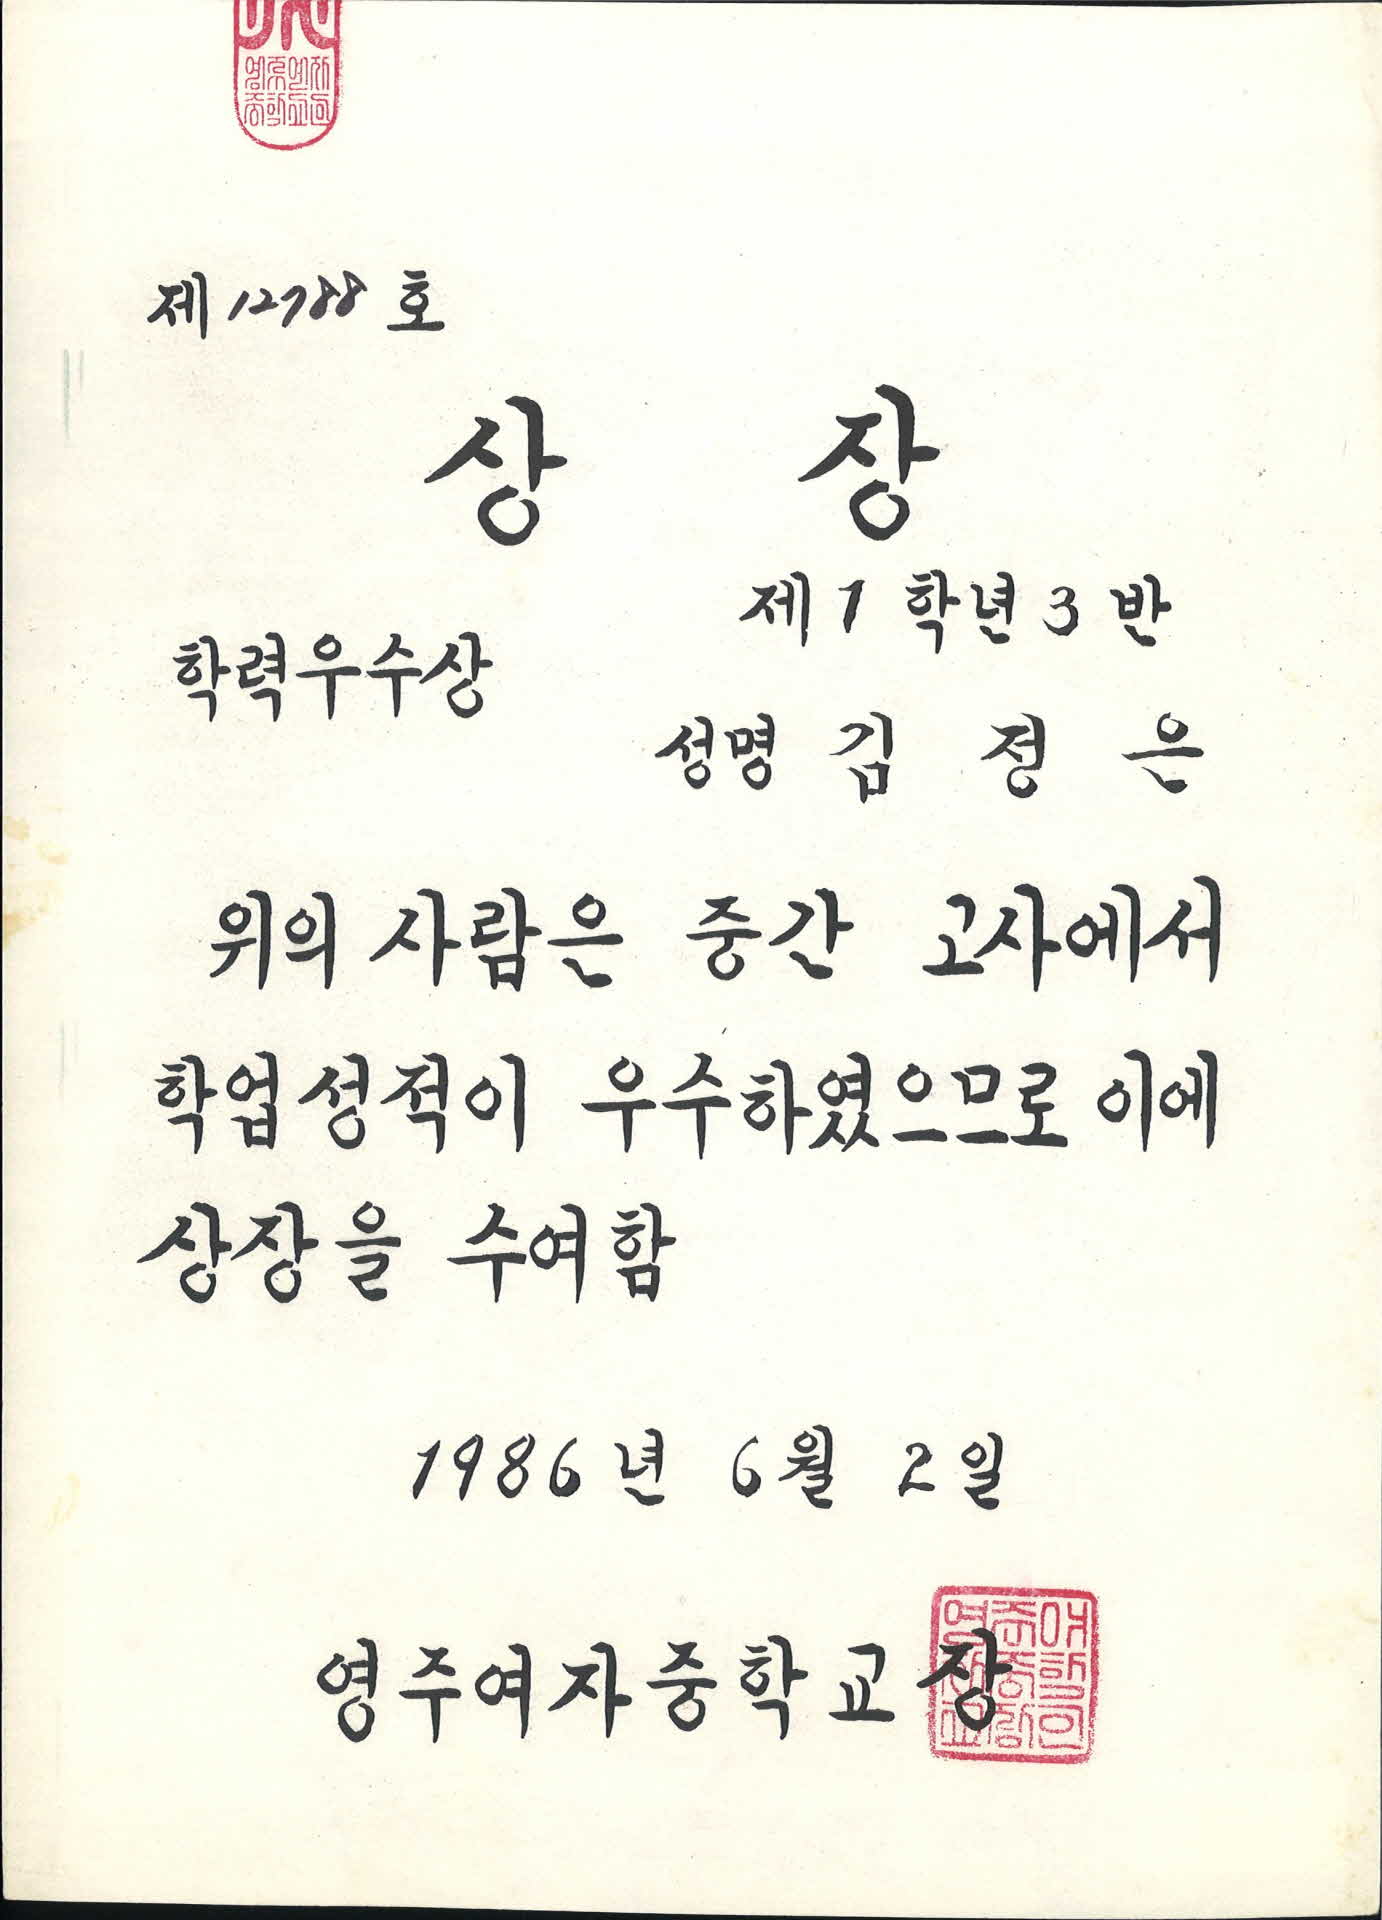 제 12788 호
상 장
제 1 학년 3 반
학력우수상
성명 김 정 은
위의 사람은 중간 고사에서
학업성적이 우수하였으므로 이에
상장을 수여함
1986년 6월 2일
영주여자중학교장